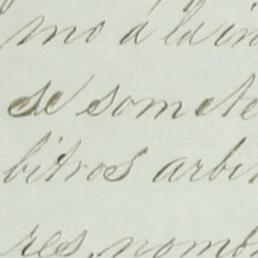 mo á la in
se somete
bitros arbi
res, nomb